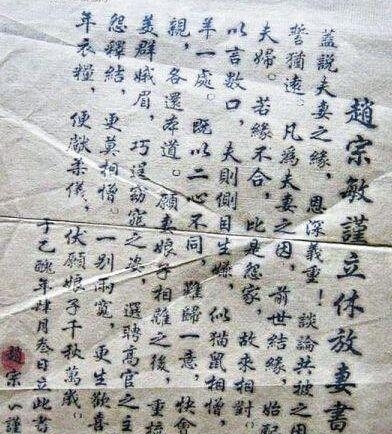 趙宗敏謹立休放妻書
蓋說夫妻之緣，恩深義重！談論共被之因
誓猶遠。凡爲夫妻之因，前世結緣，始配
夫婦。若緣不合，此是怨家，故來相對。
以言數口，夫則側目生嫌，似猫鼠相憎，
羊一處。既以二心不同，難歸一意，快會
親，各還本道。願妻娘子相離之後，重梳
美群娥眉，巧逞窈窕之姿，選聘高官之主
怨釋結，更莫相憎。一别兩寬，更生歡喜
年衣糧，便獻柔儀，伏願娘子千秋萬歲。
于乙醜年肆月叁日立此書
趙宗 謹